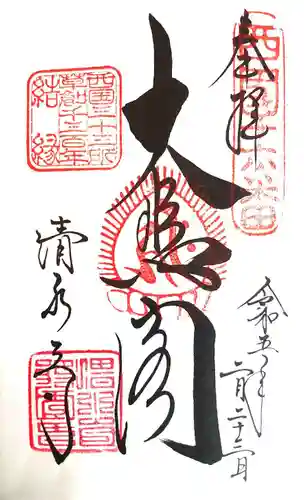 奉拝
西国十六番
令和五年
二月二十二日
大悲閣
西国三十三所
草創千三百年
結縁
清水寺